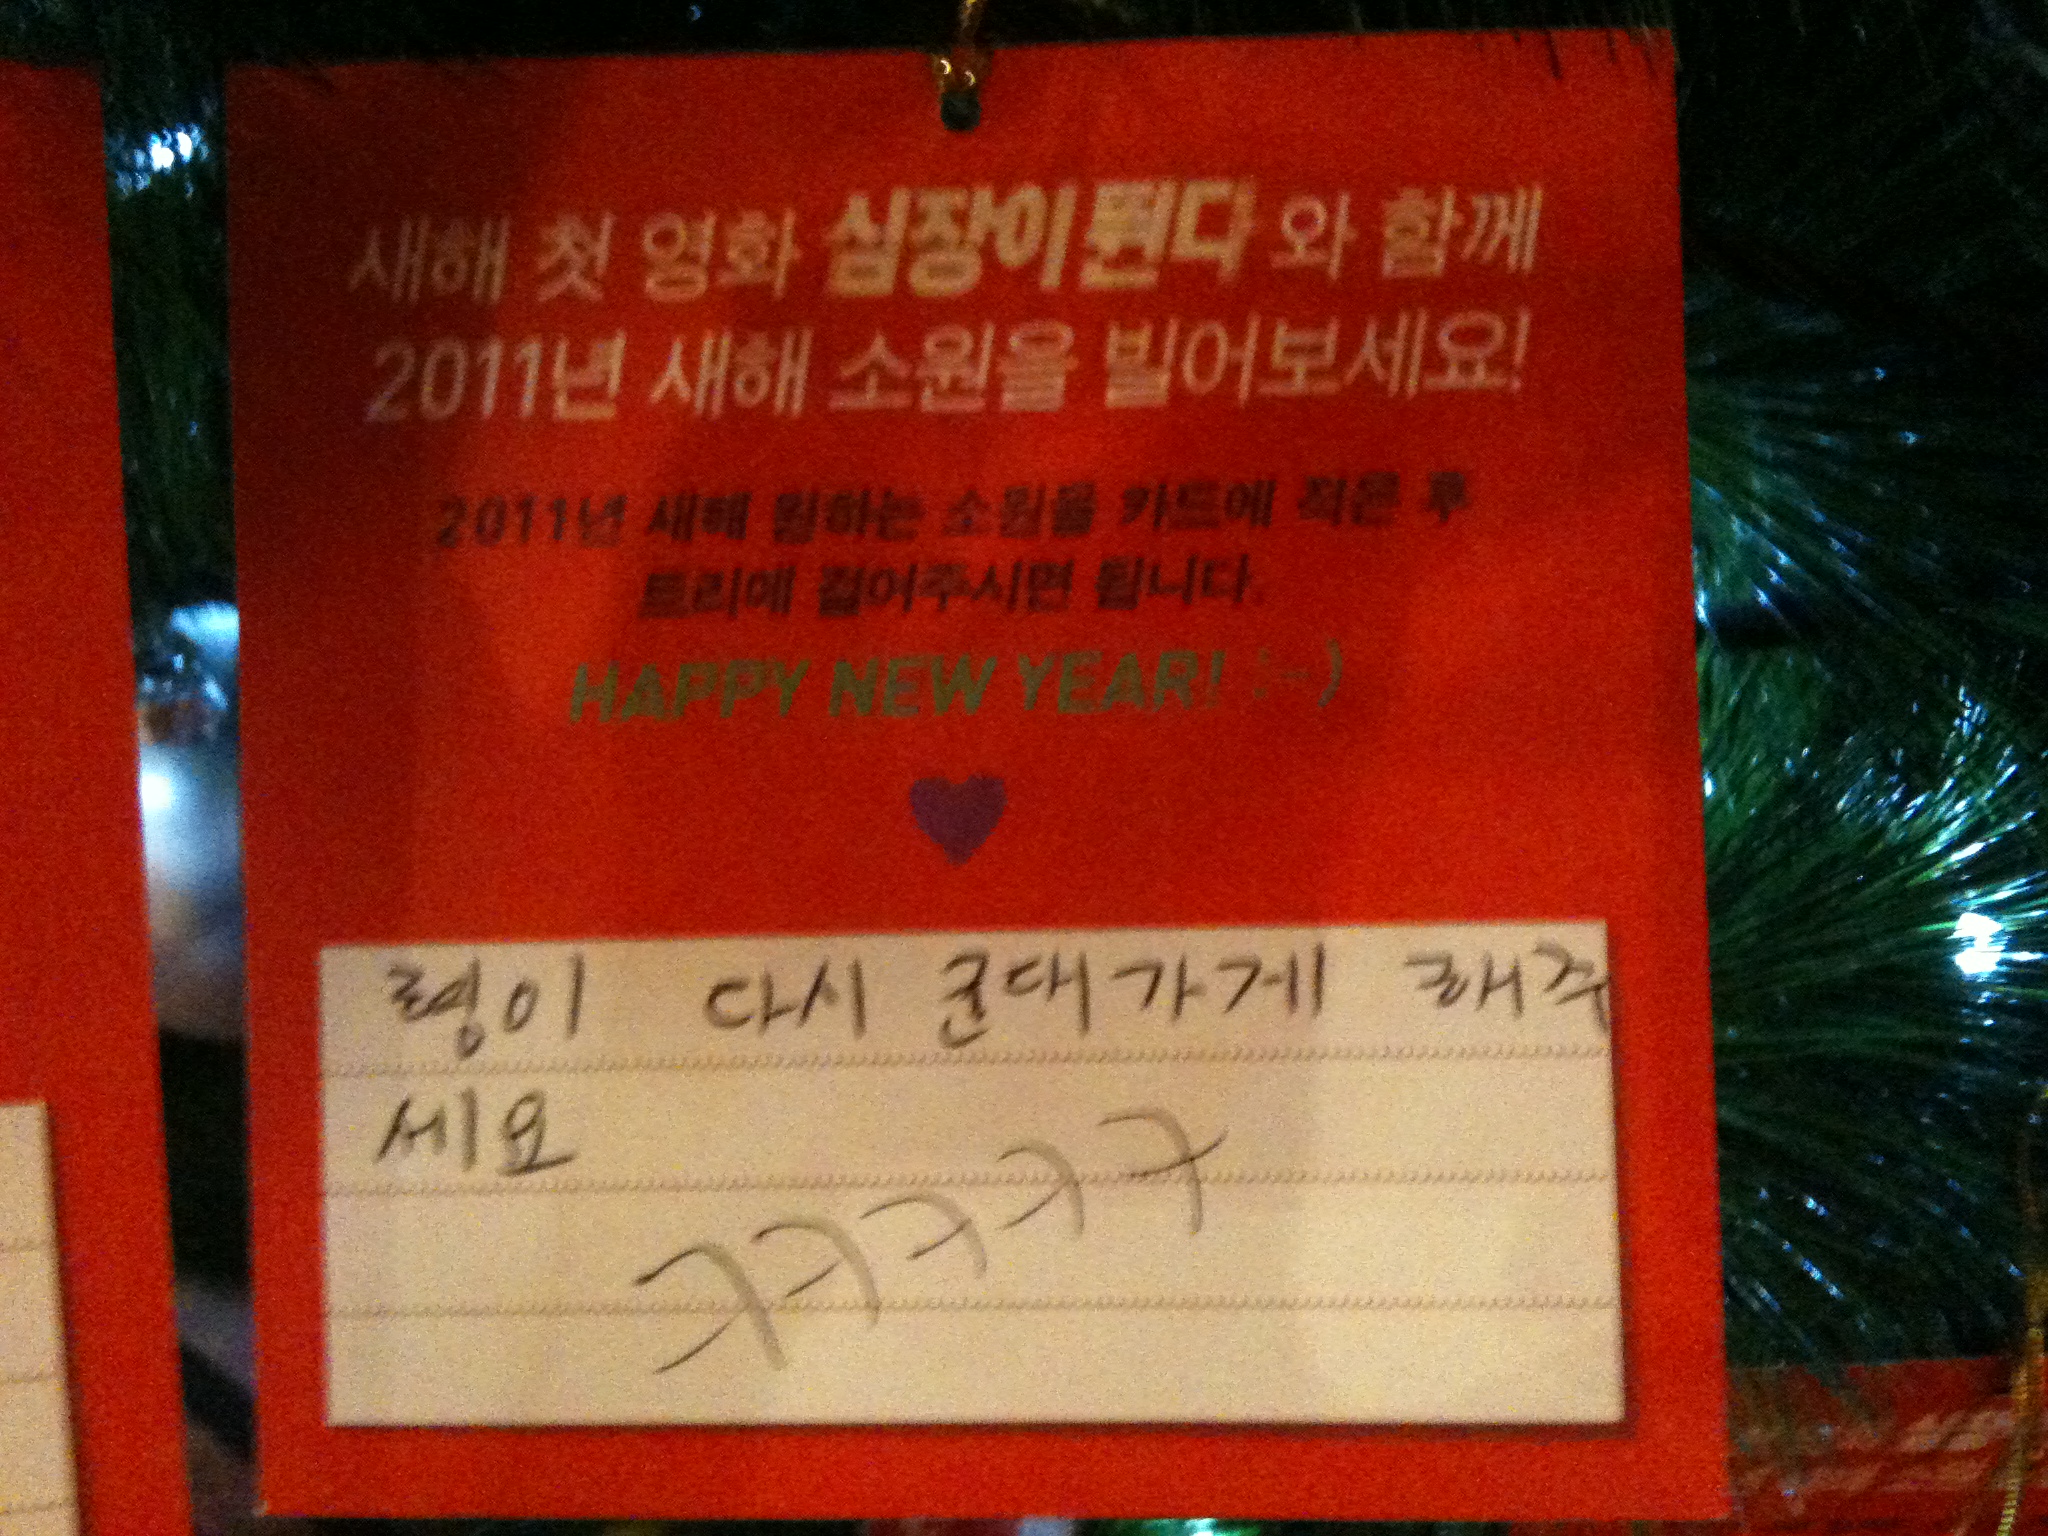 새해 첫 영화 심장이 뛴다 와 함께
2011년 새해 소원을 빌어보세요!
2011년 새해 원하는 소원을 카드에 적은 후
트리에 걸어주시면 됩니다.
HAPPY NEW YEAR! :-)
령이 다시 군대가게 해주
세요
ㅋㅋㅋㅋㅋ